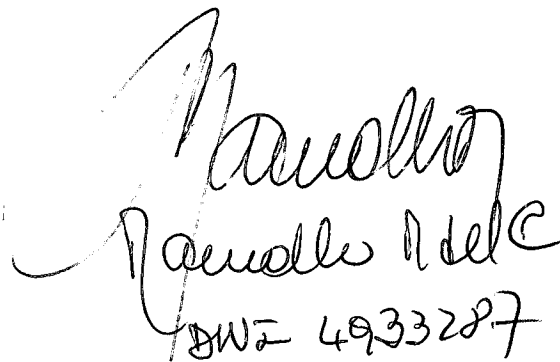 Ramallo
Ramallo M del C
DNI 4933287